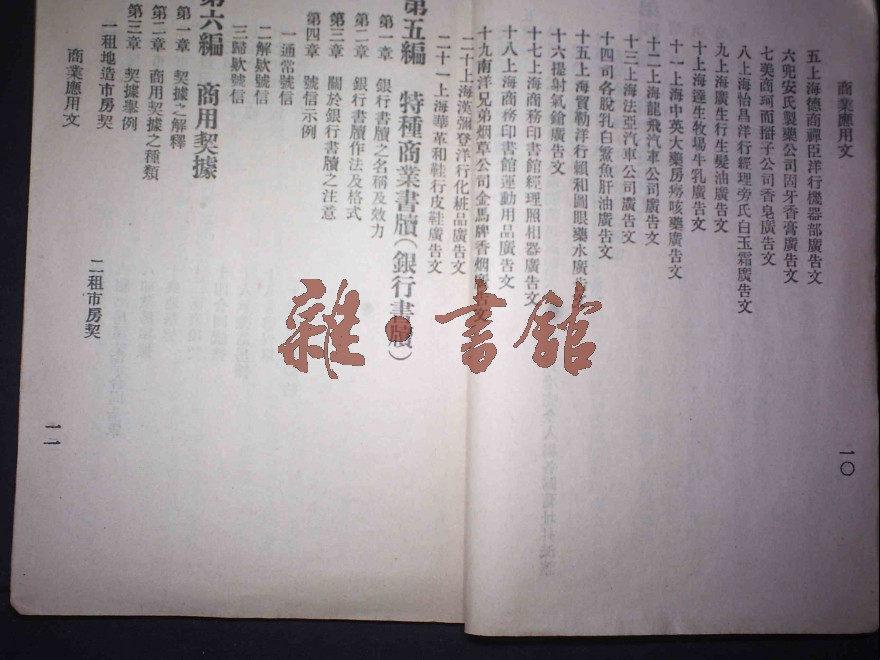 商業應用文
五上海德商禪臣洋行機器部廣告文
六兜安氏製藥公司固牙香膏廣告文
七美商珂而掰子公司香皂廣告文
八上海怡昌洋行經理旁氏白玉霜廣告文
九上海廣生行生髮油廣告文
十上海達生牧場牛乳廣告文
十一上海中英大藥房痨咳藥廣告文
十二上海龍飛汽車公司廣告文
十三上海法亞汽車公司廣告文
十四司各脫乳白鰵魚肝油廣告文
十五上海實勒洋行緞和圓眼藥水廣告文
十六提射氣鎗廣告文
十七上海商務印書館經理照相器廣告文
十八上海商務印書館運動用品廣告文
十九南洋兄弟烟草公司金馬牌香烟廣告文
二十上海漢彌登洋行化粧品廣告文
二十一上海華革和鞋行皮鞋廣告文
一〇
第五編 特種商業書牘(銀行書牘)
第一章 銀行書牘之名稱及效力
第二章 銀行書牘作法及格式
第三章 關於銀行書牘之注意
第四章 號信示例
一通常號信
二解欵號信
三歸欵號信
第六編 商用契據
第一章 契據之解釋
第二章 商用契據之種類
第三章 契據舉例
一租地造市房契
二租市房契
商業應用文
一一
雜·書館